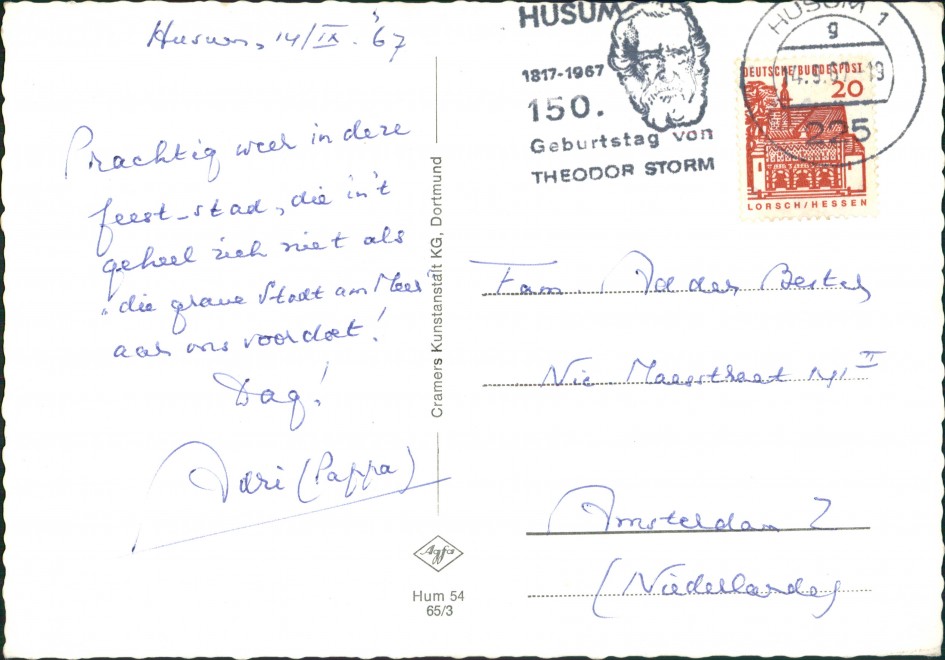 Husum, 14/IX. '67
Prachtig weer in deze
feest-stad, die in 't
geheel zich niet als
"die graue Stadt am Meer"
aan ons voordoet!
Dag!
Adri (Pappa)
Cramers Kunstanstalt KG, Dortmund
Agfa
Hum 54
65/3
HUSUM
1817-1967
150.
Geburtstag von
THEODOR STORM
HUSUM 1
g
14.9.67-19
225
DEUTSCHE BUNDESPOST
20
LORSCH/HESSEN
Fam. Ad der Bestel
Nic Maesstraat 141 II
Amsterdam Z
(Niederlande)